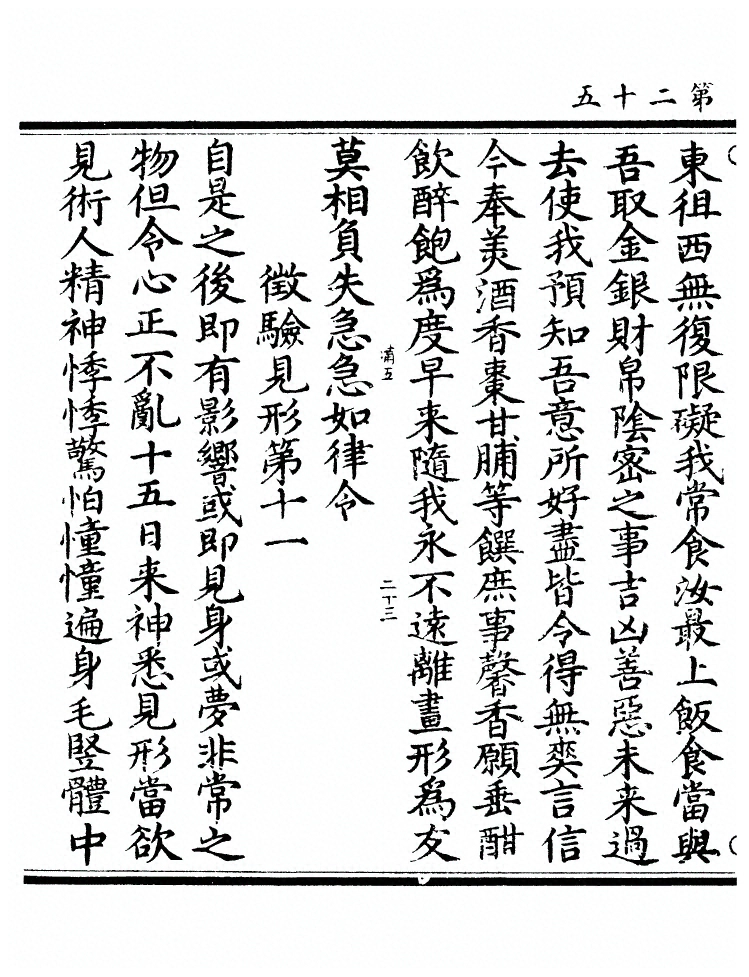 第二十五
東徂西無復限礙我常食汝最上飯食當與
吾取金銀財帛陰密之事吉凶善惡未来過
去使我預知吾意所好盡皆令得無奕言信
今奉美酒香棗甘脯等饌庶事馨香願垂酣
飲醉飽爲度早来隨我永不遠離畫形爲友
滿五
二十三
莫相負失急急如律令
徴驗見形第十一
自是之後即有影響或即見身或夢非常之
物但令心正不亂十五日来神悉見形當欲
見術人精神悸悸驚怕憧憧遍身毛竪體中